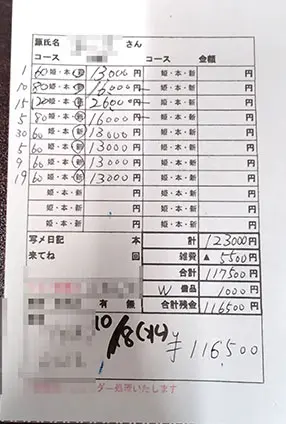 源氏名 さん
コース コース 金額
1 60 姫・本・新 13000円 姫・本・新 円
10 80 姫・本・新 16000円 姫・本・新 円
15 120 姫・本・新 26000円 姫・本・新 円
5 80 姫・本・新 16000円 姫・本・新 円
30 60 姫・本・新 13000円 姫・本・新 円
5 60 姫・本・新 13000円 姫・本・新 円
9 60 姫・本・新 13000円 姫・本・新 円
19 60 姫・本・新 13000円 姫・本・新 円
姫・本・新 円 姫・本・新 円
姫・本・新 円 姫・本・新 円
姫・本・新 円 姫・本・新 円
写メ日記 本 計 123000円
来てね 回 雑費 ▲ 5500円
合計 117500円
W 備品 1000円
有 無 合計残金 116500円
10/8(火) ¥116,500
ダー処理いたします